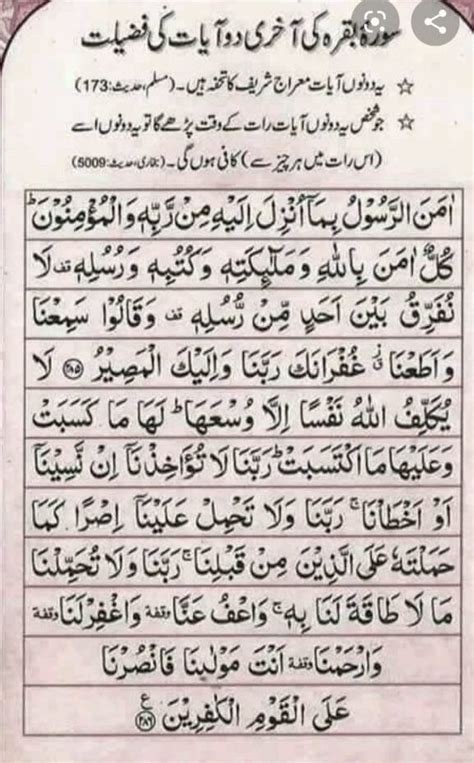 سورۃ بقرہ کی آخری دو آیات کی فضیلت
☆ یہ دونوں آیات معراج شریف کا تحفہ ہیں۔ (مسلم، حدیث: 173)
☆ جو شخص یہ دونوں آیات رات کے وقت پڑھے گا تو یہ دونوں اسے
(اس رات میں ہر چیز سے) کافی ہوں گی۔ (بخاری، حدیث: 5009)
اٰمَنَ الرَّسُوْلُ بِمَاۤ اُنْزِلَ اِلَیْهِ مِنْ رَّبِّهٖ وَ الْمُؤْمِنُوْنَ ؕ
كُلٌّ اٰمَنَ بِاللّٰهِ وَ مَلٰٓىِٕكَتِهٖ وَ كُتُبِهٖ وَ رُسُلِهٖ قف لَا
نُفَرِّقُ بَیْنَ اَحَدٍ مِّنْ رُّسُلِهٖ قف وَ قَالُوْا سَمِعْنَا
وَ اَطَعْنَا ٘ۗ غُفْرَانَكَ رَبَّنَا وَ اِلَیْكَ الْمَصِیْرُ ﴿۲۸۵﴾ لَا
یُكَلِّفُ اللّٰهُ نَفْسًا اِلَّا وُسْعَهَا ؕ لَهَا مَا كَسَبَتْ
وَ عَلَیْهَا مَا اكْتَسَبَتْ ؕ رَبَّنَا لَا تُؤَاخِذْنَاۤ اِنْ نَّسِیْنَاۤ
اَوْ اَخْطَاْنَا ۚ رَبَّنَا وَ لَا تَحْمِلْ عَلَیْنَاۤ اِصْرًا كَمَا
حَمَلْتَهٗ عَلَى الَّذِیْنَ مِنْ قَبْلِنَا ۚ رَبَّنَا وَ لَا تُحَمِّلْنَا
مَا لَا طَاقَةَ لَنَا بِهٖ ۚ وَ اعْفُ عَنَّا وقفة وَ اغْفِرْ لَنَا وقفة
وَ ارْحَمْنَا وقفة اَنْتَ مَوْلٰىنَا فَانْصُرْنَا
عَلَى الْقَوْمِ الْكٰفِرِیْنَ ﴿۲۸۶﴾ ع